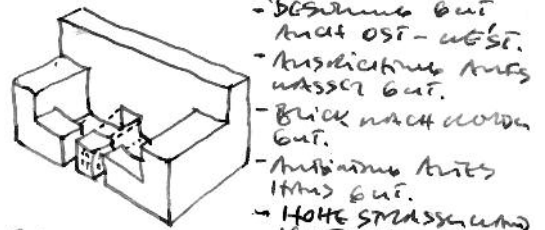 - BESONNUNG GUT
AUCH OST-WEST.
- AUSRICHTUNG ALTES
WASSER GUT.
- BLICK NACH NORDEN
GUT.
- ANBINDUNG ALTES
HAUS GUT.
- HOHE STRASSENWAND